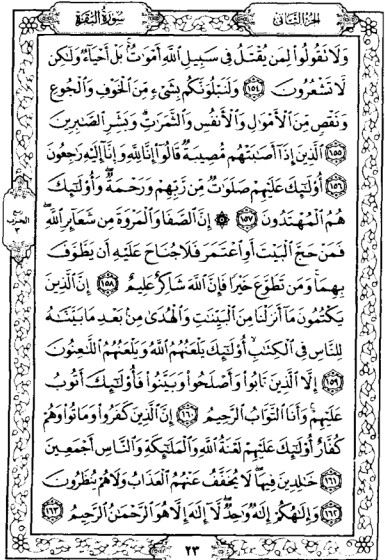 الجزء الثاني
سورة البقرة
وَلَا تَقُولُوا۟ لِمَن يُقْتَلُ فِى سَبِيلِ ٱللَّهِ أَمْوَٰتٌۢ بَلْ أَحْيَآءٌ وَلَٰكِن
لَّا تَشْعُرُونَ ١٥٤ وَلَنَبْلُوَنَّكُم بِشَىْءٍ مِّنَ ٱلْخَوْفِ وَٱلْجُوعِ
وَنَقْصٍ مِّنَ ٱلْأَمْوَٰلِ وَٱلْأَنفُسِ وَٱلثَّمَرَٰتِ وَبَشِّرِ ٱلصَّٰبِرِينَ
١٥٥ ٱلَّذِينَ إِذَآ أَصَٰبَتْهُم مُّصِيبَةٌ قَالُوٓا۟ إِنَّا لِلَّهِ وَإِنَّآ إِلَيْهِ رَٰجِعُونَ
١٥٦ أُو۟لَٰٓئِكَ عَلَيْهِمْ صَلَوَٰتٌ مِّن رَّبِّهِمْ وَرَحْمَةٌ وَأُو۟لَٰٓئِكَ
هُمُ ٱلْمُهْتَدُونَ ١٥٧ ۞ إِنَّ ٱلصَّفَا وَٱلْمَرْوَةَ مِن شَعَآئِرِ ٱللَّهِ
فَمَنْ حَجَّ ٱلْبَيْتَ أَوِ ٱعْتَمَرَ فَلَا جُنَاحَ عَلَيْهِ أَن يَطَّوَّفَ
بِهِمَا وَمَن تَطَوَّعَ خَيْرًا فَإِنَّ ٱللَّهَ شَاكِرٌ عَلِيمٌ ١٥٨ إِنَّ ٱلَّذِينَ
يَكْتُمُونَ مَآ أَنزَلْنَا مِنَ ٱلْبَيِّنَٰتِ وَٱلْهُدَىٰ مِنۢ بَعْدِ مَا بَيَّنَّٰهُ
لِلنَّاسِ فِى ٱلْكِتَٰبِ أُو۟لَٰٓئِكَ يَلْعَنُهُمُ ٱللَّهُ وَيَلْعَنُهُمُ ٱللَّٰعِنُونَ
١٥٩ إِلَّا ٱلَّذِينَ تَابُوا۟ وَأَصْلَحُوا۟ وَبَيَّنُوا۟ فَأُو۟لَٰٓئِكَ أَتُوبُ
عَلَيْهِمْ وَأَنَا ٱلتَّوَّابُ ٱلرَّحِيمُ ١٦٠ إِنَّ ٱلَّذِينَ كَفَرُوا۟ وَمَاتُوا۟ وَهُمْ
كُفَّارٌ أُو۟لَٰٓئِكَ عَلَيْهِمْ لَعْنَةُ ٱللَّهِ وَٱلْمَلَٰٓئِكَةِ وَٱلنَّاسِ أَجْمَعِينَ
١٦١ خَٰلِدِينَ فِيهَا لَا يُخَفَّفُ عَنْهُمُ ٱلْعَذَابُ وَلَا هُمْ يُنظَرُونَ
١٦٢ وَإِلَٰهُكُمْ إِلَٰهٌ وَٰحِدٌ لَّآ إِلَٰهَ إِلَّا هُوَ ٱلرَّحْمَٰنُ ٱلرَّحِيمُ ١٦٣
٢٣